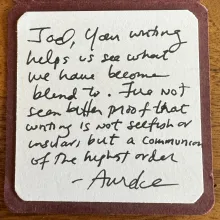 Jad, your writing
helps us see what
we have become
blind to. I've not
seen better proof that
writing is not selfish or
insular, but a communion
of the highest order
-